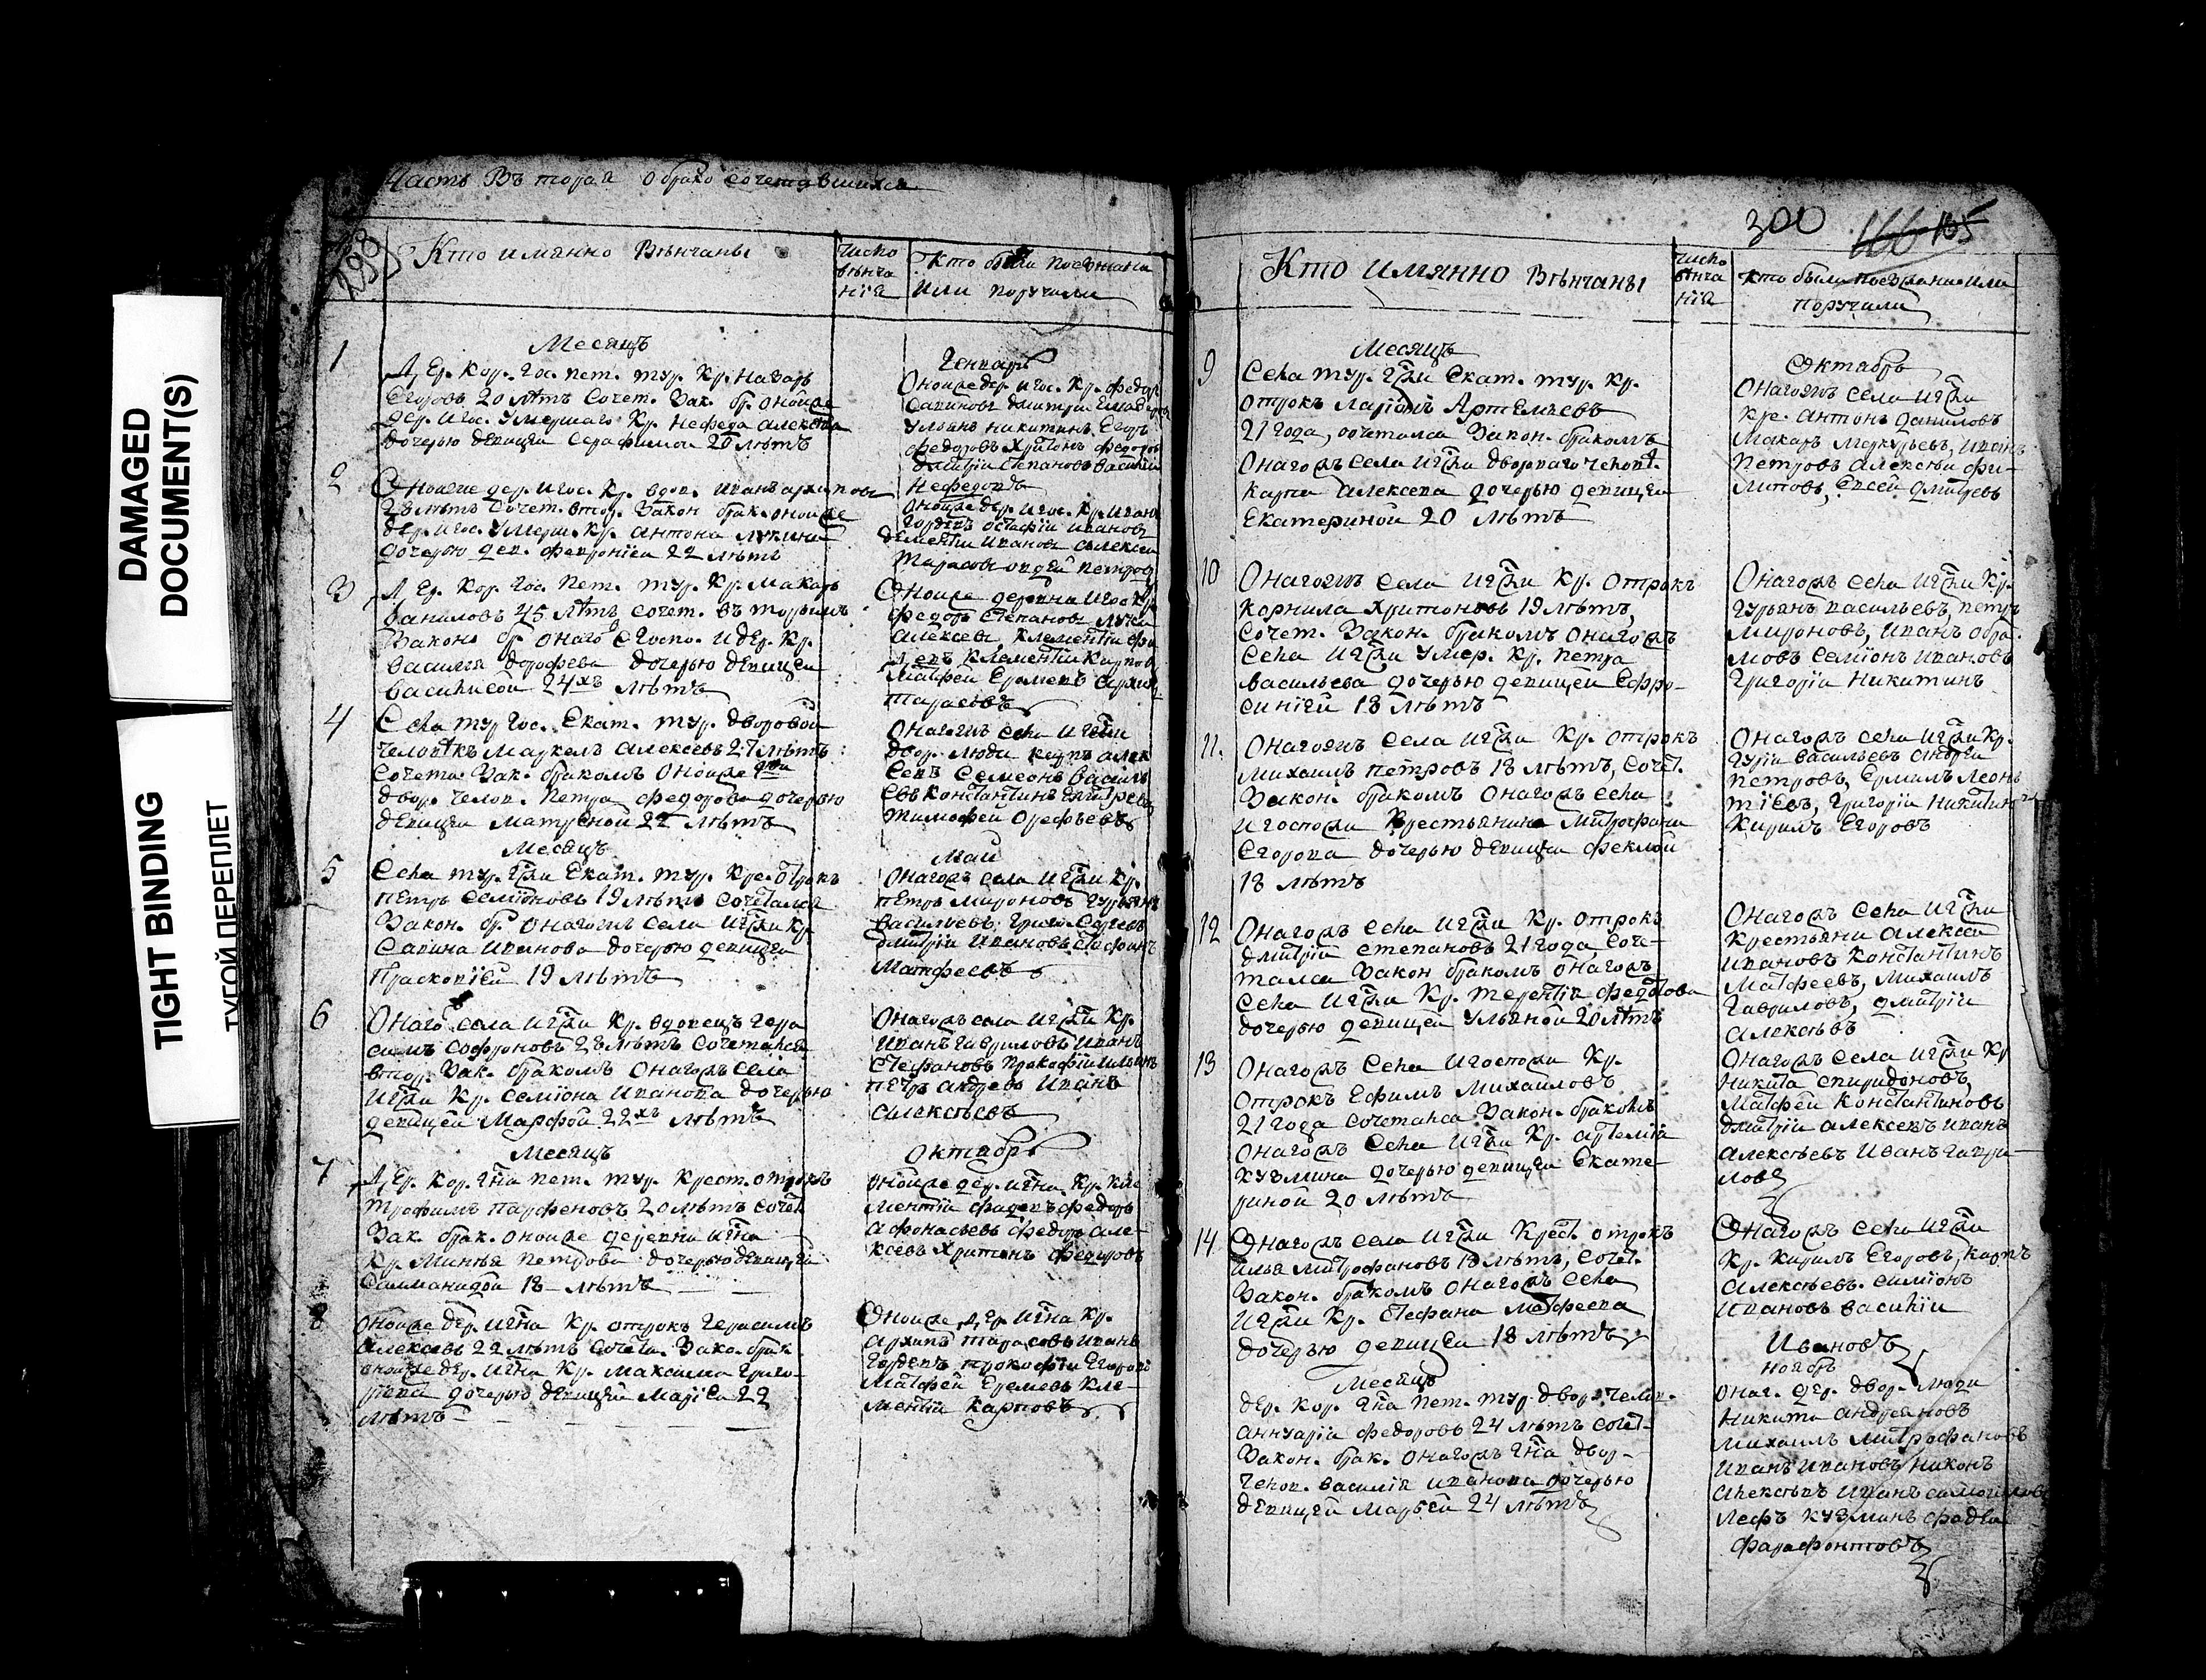 DAMAGED
DOCUMENT(S)
TIGHT BINDING
ТУГОЙ ПЕРЕПЛЕТ
Часть Вторая о брако сочетавшихся
298
Кто имянно Вѣнчаны
число
вѣнча
нїя
Кто были поезжана
или поручили
Месяцъ
Генварь
1
Дер. Кор. Гос. пет. тур. Кр. Назаръ
Егоровъ 20 лѣтъ Сочет. Зак. бр. оноиже
дер. игос. Умершаго Кр. Нефеда алексѣева
дочерью девицеи Серафимои 20 лѣтъ
Оноиже дер. игос. Кр. федоръ
Савиновъ дмитри
Ульянъ никитинъ Егоръ
федоровъ Харитонъ федоровъ
дмитрїи степановъ василїи
Нефедовъ
2
Оноиже дер. игос. Кр. вдов. иванъ архиповъ
28 лѣтъ Сочет. втор. Закон. брак. оноиже
дер. игос. Умерш. Кр. антона
дочерью дев. февронїеи 22 лѣтъ
Оноиже дер. игос. Кр. иванъ
Гордѣевъ остафїи ивановъ
дементїи ивановъ алексѣи
тарасовъ петровъ
3
Дер. Кор. Гос. пет. тур. Кр. макаръ
даниловъ 45 лѣтъ сочет. вторымъ
Законо бр. онаго Госпо. идер. Кр.
василья дорофѣева дочерью девицеи
василисои 24хъ лѣтъ
Оноиже деревни игос. Кр.
федоръ степановъ лука
алексѣевъ, Клементїи фа
деевъ Клементїи карповъ
матфеи Еремеевъ архипъ
тарасовъ
4
Села тур. Гос. Екат. тур. дворовои
человѣкъ маркелъ алексѣевъ 27 лѣтъ
сочета. Зак. бракомъ Оноиже гжи
двор. челов. петра федорова дочерью
девицеи матреною 22 лѣтъ
Онагожъ села игжи
двор. люди карпъ алек
сеевъ Семеонъ василь
евъ Константинъ дмитреевъ
тимофеи Орефьевъ
Месяцъ
Маи
5
Села тур. гжи Екат. тур. Кре. отрокъ
петръ Семїоновъ 19 лѣтъ сочетался
Закон. бр. онагожъ села игжи Кр.
Савина иванова дочерью девицеи
Прасковїеи 19 лѣтъ
Онагожъ села игжи Кр.
петръ мироновъ Гурьянъ
васильевъ, григо. Сергеевъ
дмитрїи ивановъ стефанъ
матфеевъ
6
Онаго села игжи Кр. вдовецъ гера
симъ софроновъ 28 лѣтъ Сочетался
втор. Зак. бракомъ онагожъ села
игжи Кр. семїона иванова дочерью
девицеи Марфои 22хъ лѣтъ
Онагожъ села игжи Кр.
иванъ Гавриловъ иванъ
стефановъ прокофїи ильинъ
петръ андреевъ иванъ
алексѣевъ
Месяцъ
Октябрь
7
Дер. Кор. гна пет. тур. Крест. отрокъ
трофимъ парфеновъ 20 лѣтъ сочет.
Зак. брак. оноиже деревни игна
Кр. миная петрова дочерью девицеи
Саломанидои 18 лѣтъ
Оноиже дер. игна. Кр. кле
ментїи фадеевъ федоръ
афонасьевъ федоръ але
ксеевъ Харитонъ федоровъ
8
Оноиже дер. игна Кр. отрокъ Герасимъ
алексеевъ 22 лѣтъ Сочета. Зако. брак.
оноиже дер. игна Кр. максима Григо
рьева дочерью девицеи марїеи 22
лѣтъ
Оноиже дер. игна Кр.
архипъ тарасовъ иванъ
Гордеевъ прокофїи Егоровъ
матфеи Еремеевъ Кле
ментїи карповъ
300
166 165
Кто имянно Вѣнчаны
число
вѣнча
нїя
Кто были поезжане или
поручили
Месяцъ
Октябрь
9
Села тур. гжи Екат. тур. Кр.
отрокъ ларїонъ Артемьевъ
21 года, сочетался Закон. бракомъ
онагожъ села игжи дворнаго челов.
карпа алексеева дочерью девицеи
Екатериною 20 лѣтъ
Онагожъ села игжи
Кре. антонъ даниловъ
макаръ меркурьевъ, иванъ
петровъ алексеи фи-
липовъ, Евсеи дмитревъ
10
Онагожъ села игжи Кр. отрокъ
корнила Харитоновъ 19 лѣтъ,
Сочет. Закон. бракомъ онагожъ
села игжи Умер. Кр. петра
васильева дочерью девицеи Ефро-
синїеи 18 лѣтъ
Онагожъ села игжи Кр.
Гурьянъ васильевъ, петръ
мироновъ, иванъ абра-
мовъ семїонъ ивановъ
Григорїи Никитинъ
11.
Онагожъ села игжи Кр. отрокъ
михаилъ петровъ 18 лѣтъ, сочет.
Закон. бракомъ онагожъ села
игоспожи Крестьянина митрофана
Егорова дочерью девицеи феклои
18 лѣтъ
Онагожъ села игжи Кр.
Гурїи васильевъ андреи
петровъ, Ермилъ леонъ
тїевъ, григорїи никитинъ
Кирилъ Егоровъ
12
Онагожъ села игжи Кр. отрокъ
дмитрїи степановъ 21 года Соче-
тался Закон бракомъ онагожъ
села игжи Кр. терентїя федотова
дочерью девицеи Ульяною 20 лѣтъ
Онагожъ села игжи
Крестьяни алексеи
ивановъ Константинъ
матфеевъ, михаилъ
Гавриловъ, дмитрїи
алексѣевъ
13
Онагожъ села игоспожи Кр.
отрокъ Ефимъ михаиловъ
21 года сочетался Закон. бракомъ
онагожъ села игжи Кр. артемїя
кузмина дочерью девицеи Екате-
риной 20 лѣтъ
Онагожъ села игжи Кр
никита спиридоновъ,
матфеи Константиновъ
дмитрїи алексеевъ иванъ
алексѣевъ иванъ гаври-
ловъ
14.
Онагожъ села игжи Крест. отрокъ
илья митрофановъ 18 лѣтъ, сочет.
Закон. бракомъ онагожъ села
игжи Кр. стефана матфеева
дочерью девицеи 18 лѣтъ
Онагожъ села игжи
Кр. кирилъ Егоровъ, карпъ
алексѣевъ. симїонъ
ивановъ василїи
Ивановъ
Месяцъ
ноябрь
дер. Кор. гна пет. тур. двор. челов.
аннуарїи федоровъ 24 лѣтъ сочет-
Закон. брак. онагожъ гна двор-
челов. василїя иванова дочерью
девицеи марьеи 24 лѣтъ
онаг. дер. двор. люди
никита андреяновъ
михаилъ митрофановъ
иванъ ивановъ никонъ
алексѣевъ иванъ самоиловъ
лефъ кузминъ фадеи
фарафонтовъ